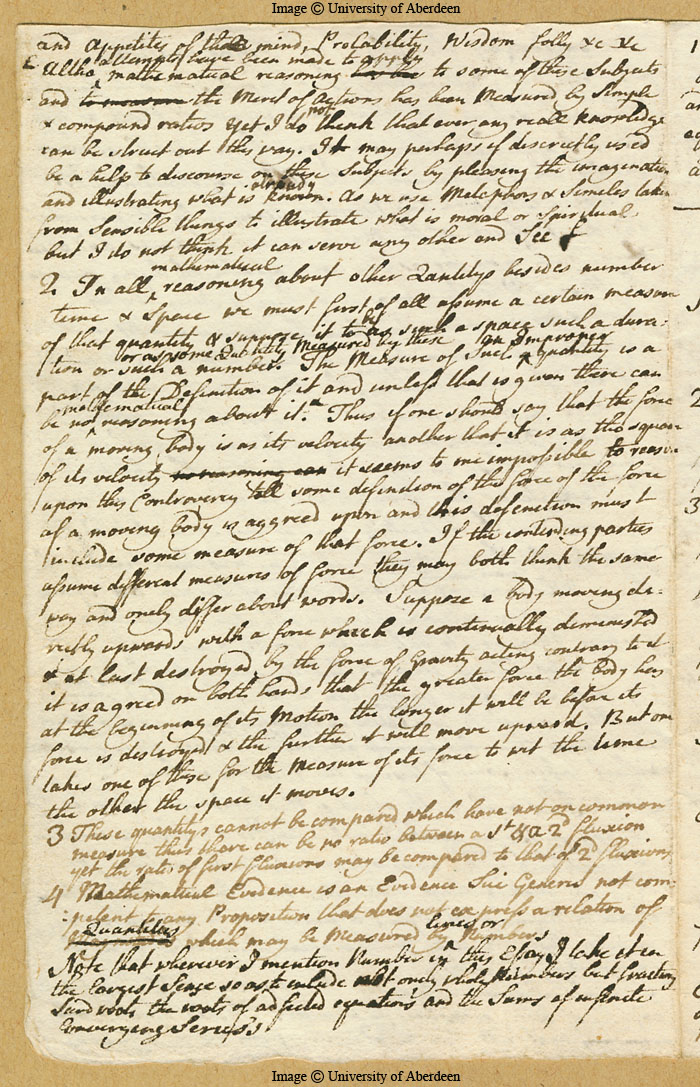 Image © University of Aberdeen
and Appetites of the mind, Probability, Wisdom folly &c &c
attempts have been made to apply
Altho mathematical reasoning to some of these Subjects
and to measure the Merit of Actions has been Measured by Simple
& compound ratios yet I do not think that ever any reall knowledge
can be struct out this way. It may perhaps if discreetly used
be a help to discourse on these Subjects by pleasing the imagination
already
and illustrating what is known. As we use Metaphors & Similes taken
from Sensible things to illustrate what is moral or Spiritual
but I do not think it can serve any other end See
mathematical
2 In all reasoning about other Quantitys besides number
time & Space we must first of all assume a certain measure
of that quantity & suppose it to be as such a space such a dura:
or as some Quantity Measured by these an improper
tion or such a number. The Measure of Such quantity is a
part of the Definition of it and unless that is given there can
mathematical
be no reasoning about it. Thus if one should say that the force
of a moving body is as its velocity another that it is as the square
of its velocity no reasoning can it seems to me impossible to reason
upon this Controversy till some definition of the force of the force
of a moving body is aggreed upon and this defenition must
include some measure of that force. If the contending parties
assume different measures of force they may both think the same
way and onely differ about words. Suppose a body moving di-
rectly upwards with a force which is continually diminished
& at last destroyed by the force of Gravity acting contrary to it
it is agreed on both hands that the greater force the body has
at the beginning of its Motion the longer it will be before its
force is destroyed & the further it will move upward. But one
takes one of these for the Measure of its force to wit the time
the other the space it moves.
3 These quantitys cannot be compared which have not on common
measure thus there can be no ratio between a 1st & a 2d fluxion
yet the ratio of first fluxions may be compared to that of 2d fluxions
4 Mathematical Evidence is an Evidence Sui Generis not com-
:petent to any Proposition that does not express a relation of
Quantities lines or
which may be Measured by Numbers
Note that wherever I mention Number in this Essay I take it in
the largest Sense so as to include not onely whole Numbers but fractions
Surd roots the roots of adfected equations and the Sums of infinite
Converging Series's
Image © University of Aberdeen